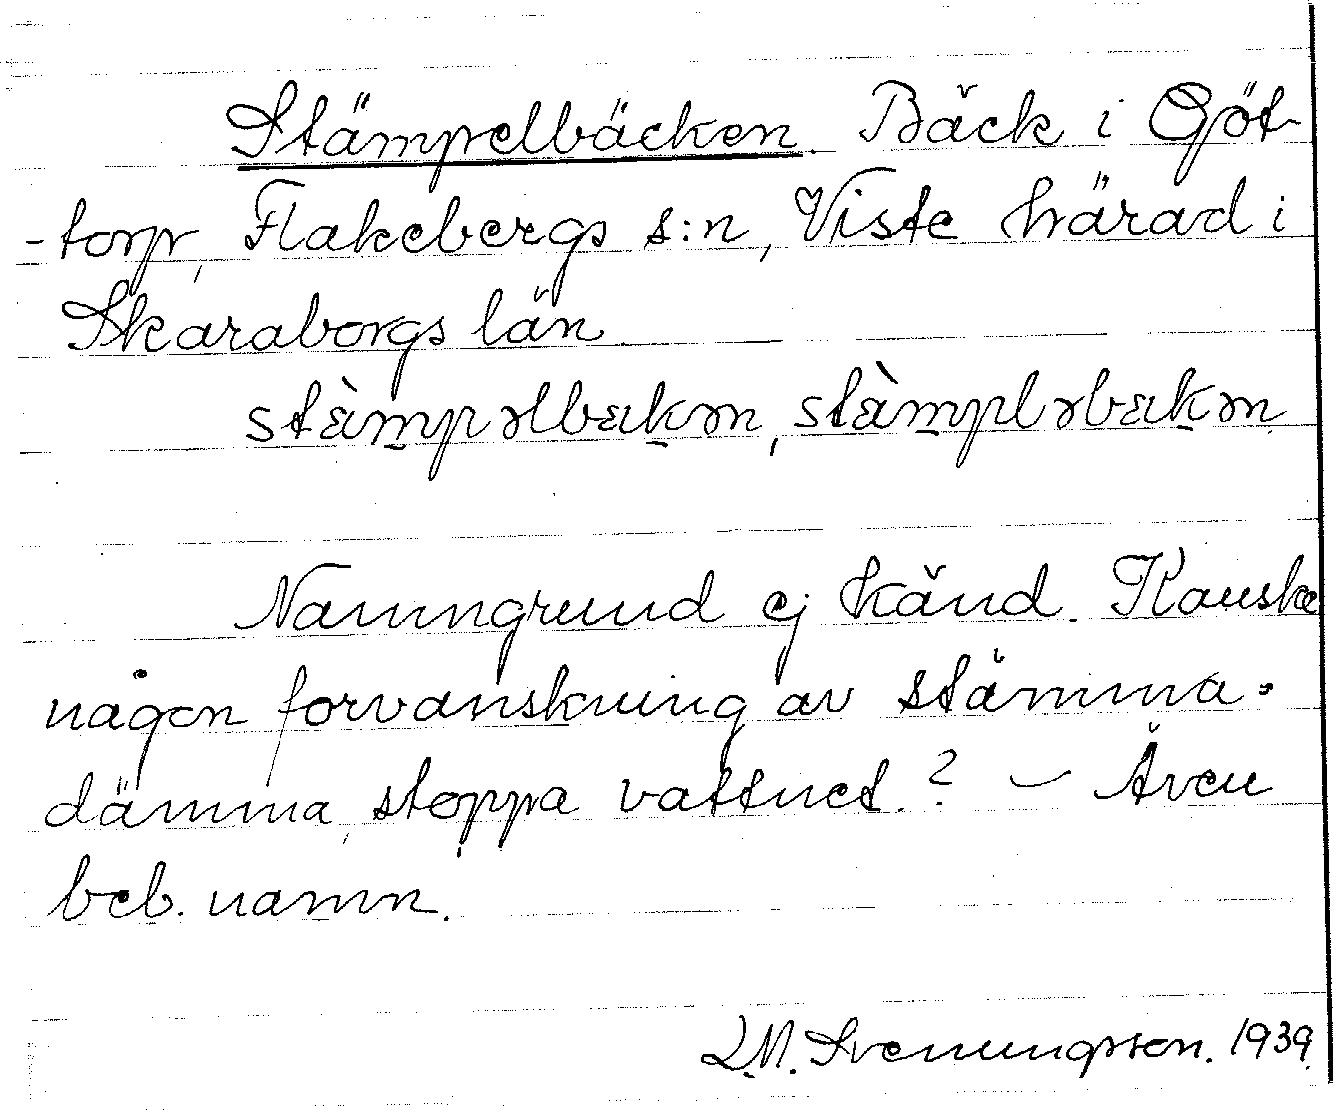 Stämpelbäcken. Bäck i Göt-
-torp, Flakebergs s:n, Viste härad i
Skaraborgs län
stæ̀mpəlbækən, stæ̀mpləbækən.
Namngrund ej känd. Kanske
någon forvanskning av stämma =
dämma, stoppa vattnet.? – Även
beb. namn.
L.M. Svenungsson. 1939.